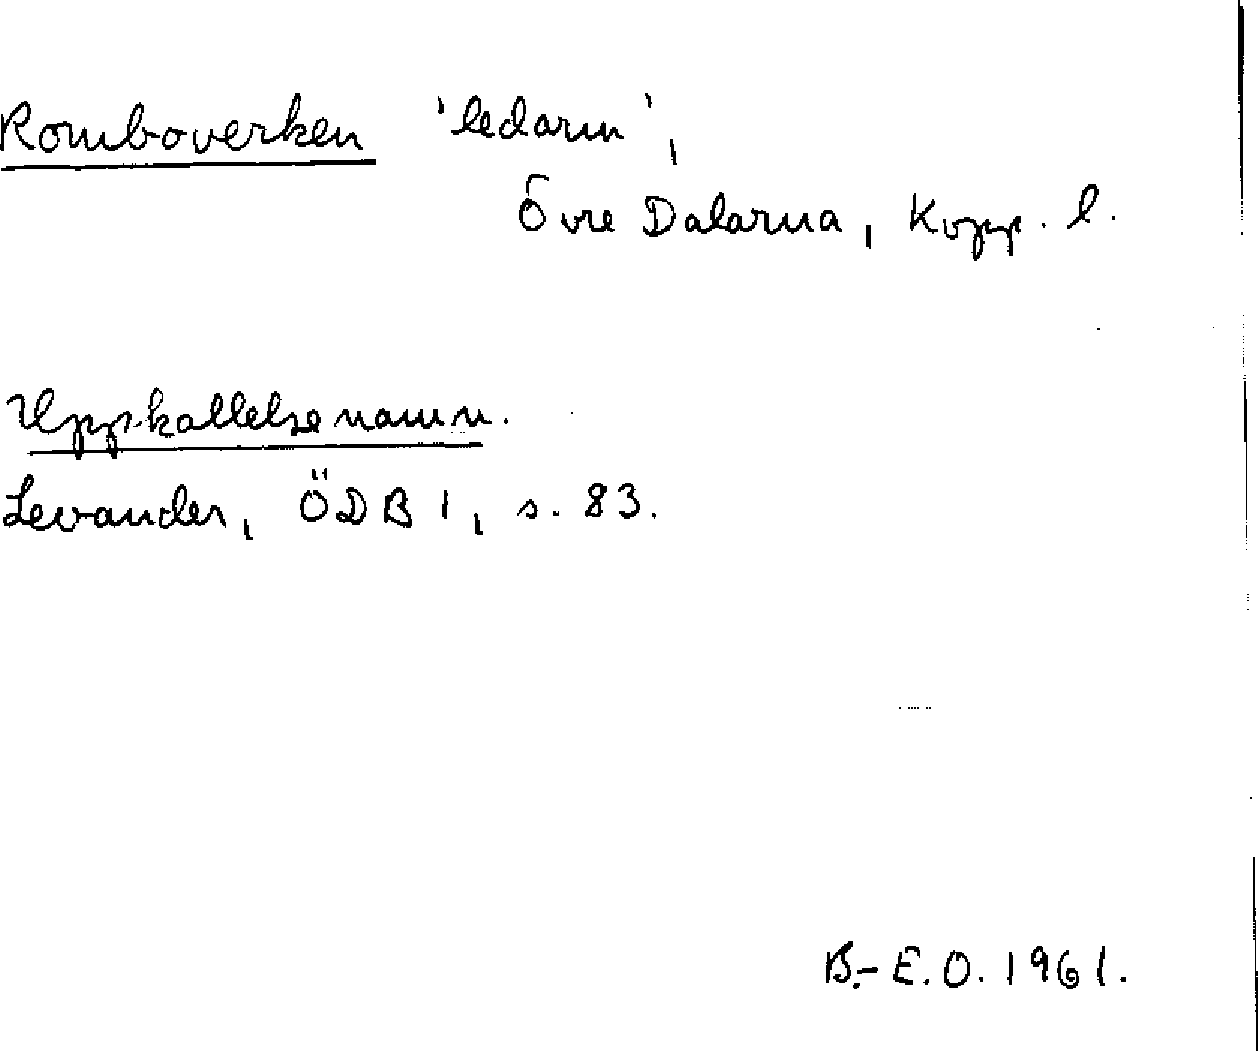 Romboverken 'ledarm',
Övre Dalarna, Kopp. l.
Uppkallelsenamn.
Levander, ÖDB I, s. 83.
B.-E.O. 1961.